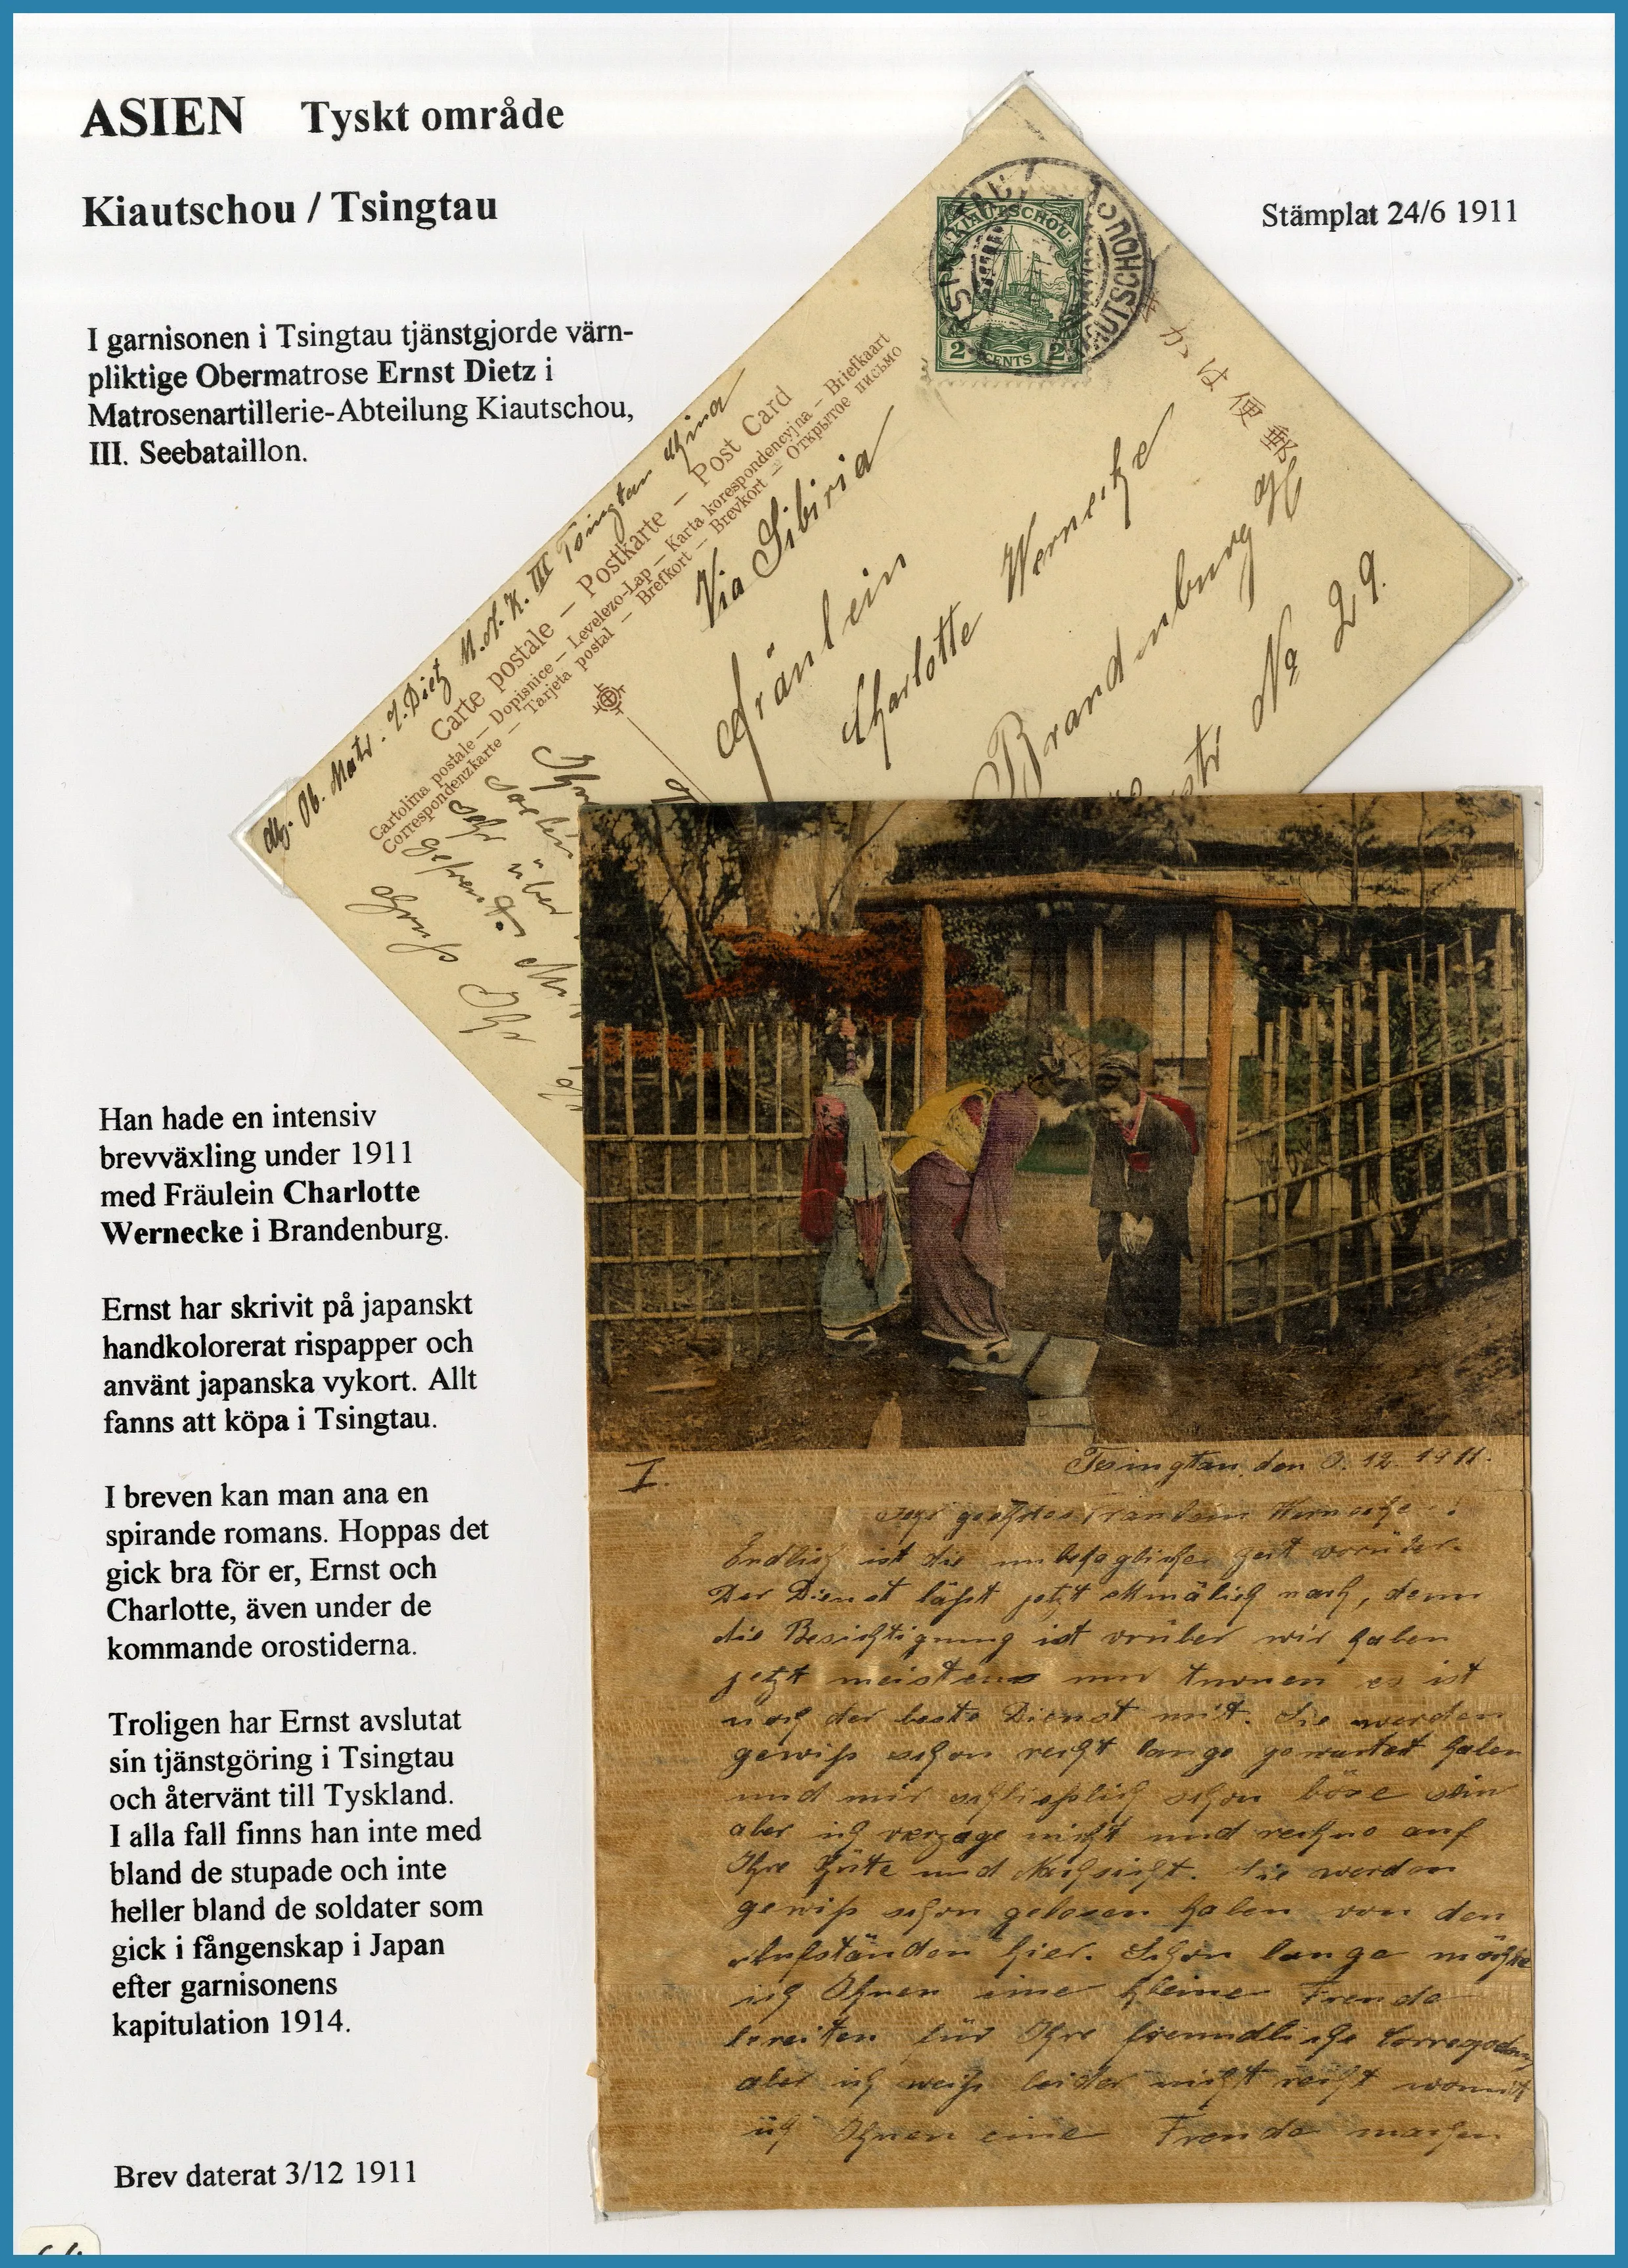 ASIEN Tyskt område
Kiautschou / Tsingtau
Stämplat 24/6 1911
I garnisonen i Tsingtau tjänstgjorde värn-
pliktige Obermatrose Ernst Dietz i
Matrosenartillerie-Abteilung Kiautschou,
III. Seebataillon.
KIAUTSCHOU
2 CENTS 2
TSINGTAU
KIAUTSCHOU
郵便はかき
Abs. Ob. Matr. E. Dietz M.A.K. III Tsingtau China
Carte postale – Postkarte – Post Card
Cartolina postale – Dopisnice – Levelezo-Lap – Karta korespondencyjna – Briefkaart
Correspondenzkarte – Tarjeta postal – Brefkort – Brevkort – Открытое письмо
Via Sibiria
Fräulein
Charlotte Wernecke
Brandenburg a/H
str. No 29.
sehr über
gefreut.
Gruß Ihr
Han hade en intensiv
brevväxling under 1911
med Fräulein Charlotte
Wernecke i Brandenburg.
Ernst har skrivit på japanskt
handkolorerat rispapper och
använt japanska vykort. Allt
fanns att köpa i Tsingtau.
I breven kan man ana en
spirande romans. Hoppas det
gick bra för er, Ernst och
Charlotte, även under de
kommande orostiderna.
Troligen har Ernst avslutat
sin tjänstgöring i Tsingtau
och återvänt till Tyskland.
I alla fall finns han inte med
bland de stupade och inte
heller bland de soldater som
gick i fångenskap i Japan
efter garnisonens
kapitulation 1914.
Brev daterat 3/12 1911
I.
Tsingtau, den 3. 12. 1911.
Sehr geehrtes Fräulein Wernecke!
Endlich ist die unbehagliche Zeit vorüber.
Der Dienst läßt jetzt allmälich nach, denn
die Besichtigung ist vorüber wir haben
jetzt meistens nur turnen es ist
noch der beste Dienst mit. Sie werden
gewiß schon recht lange gewartet haben
und mir schließlich schon böse sein
aber ich verzage nicht und rechne auf
Ihre Güte und Nachsicht. Sie werden
gewiß schon gelesen haben von den
Aufständen hier. Schon lange möchte
ich Ihnen eine kleine Freude
bereiten für Ihre freundliche
aber ich weiß leider nicht recht womit
ich Ihnen eine Freude machen